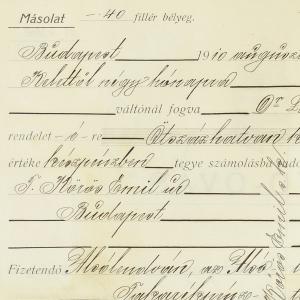 Másolat - 40 fillér bélyeg.
Budapest 1910 auguszt
Kelettől négy hónapra
váltónál fogva Dr L
rendelet - ö - re Ötszázhatvan k
értéke készpénzben tegye számolásba
T. Kőrös Emil úr
Budapest
Fizetendő az
Kőrös Emil s.k.